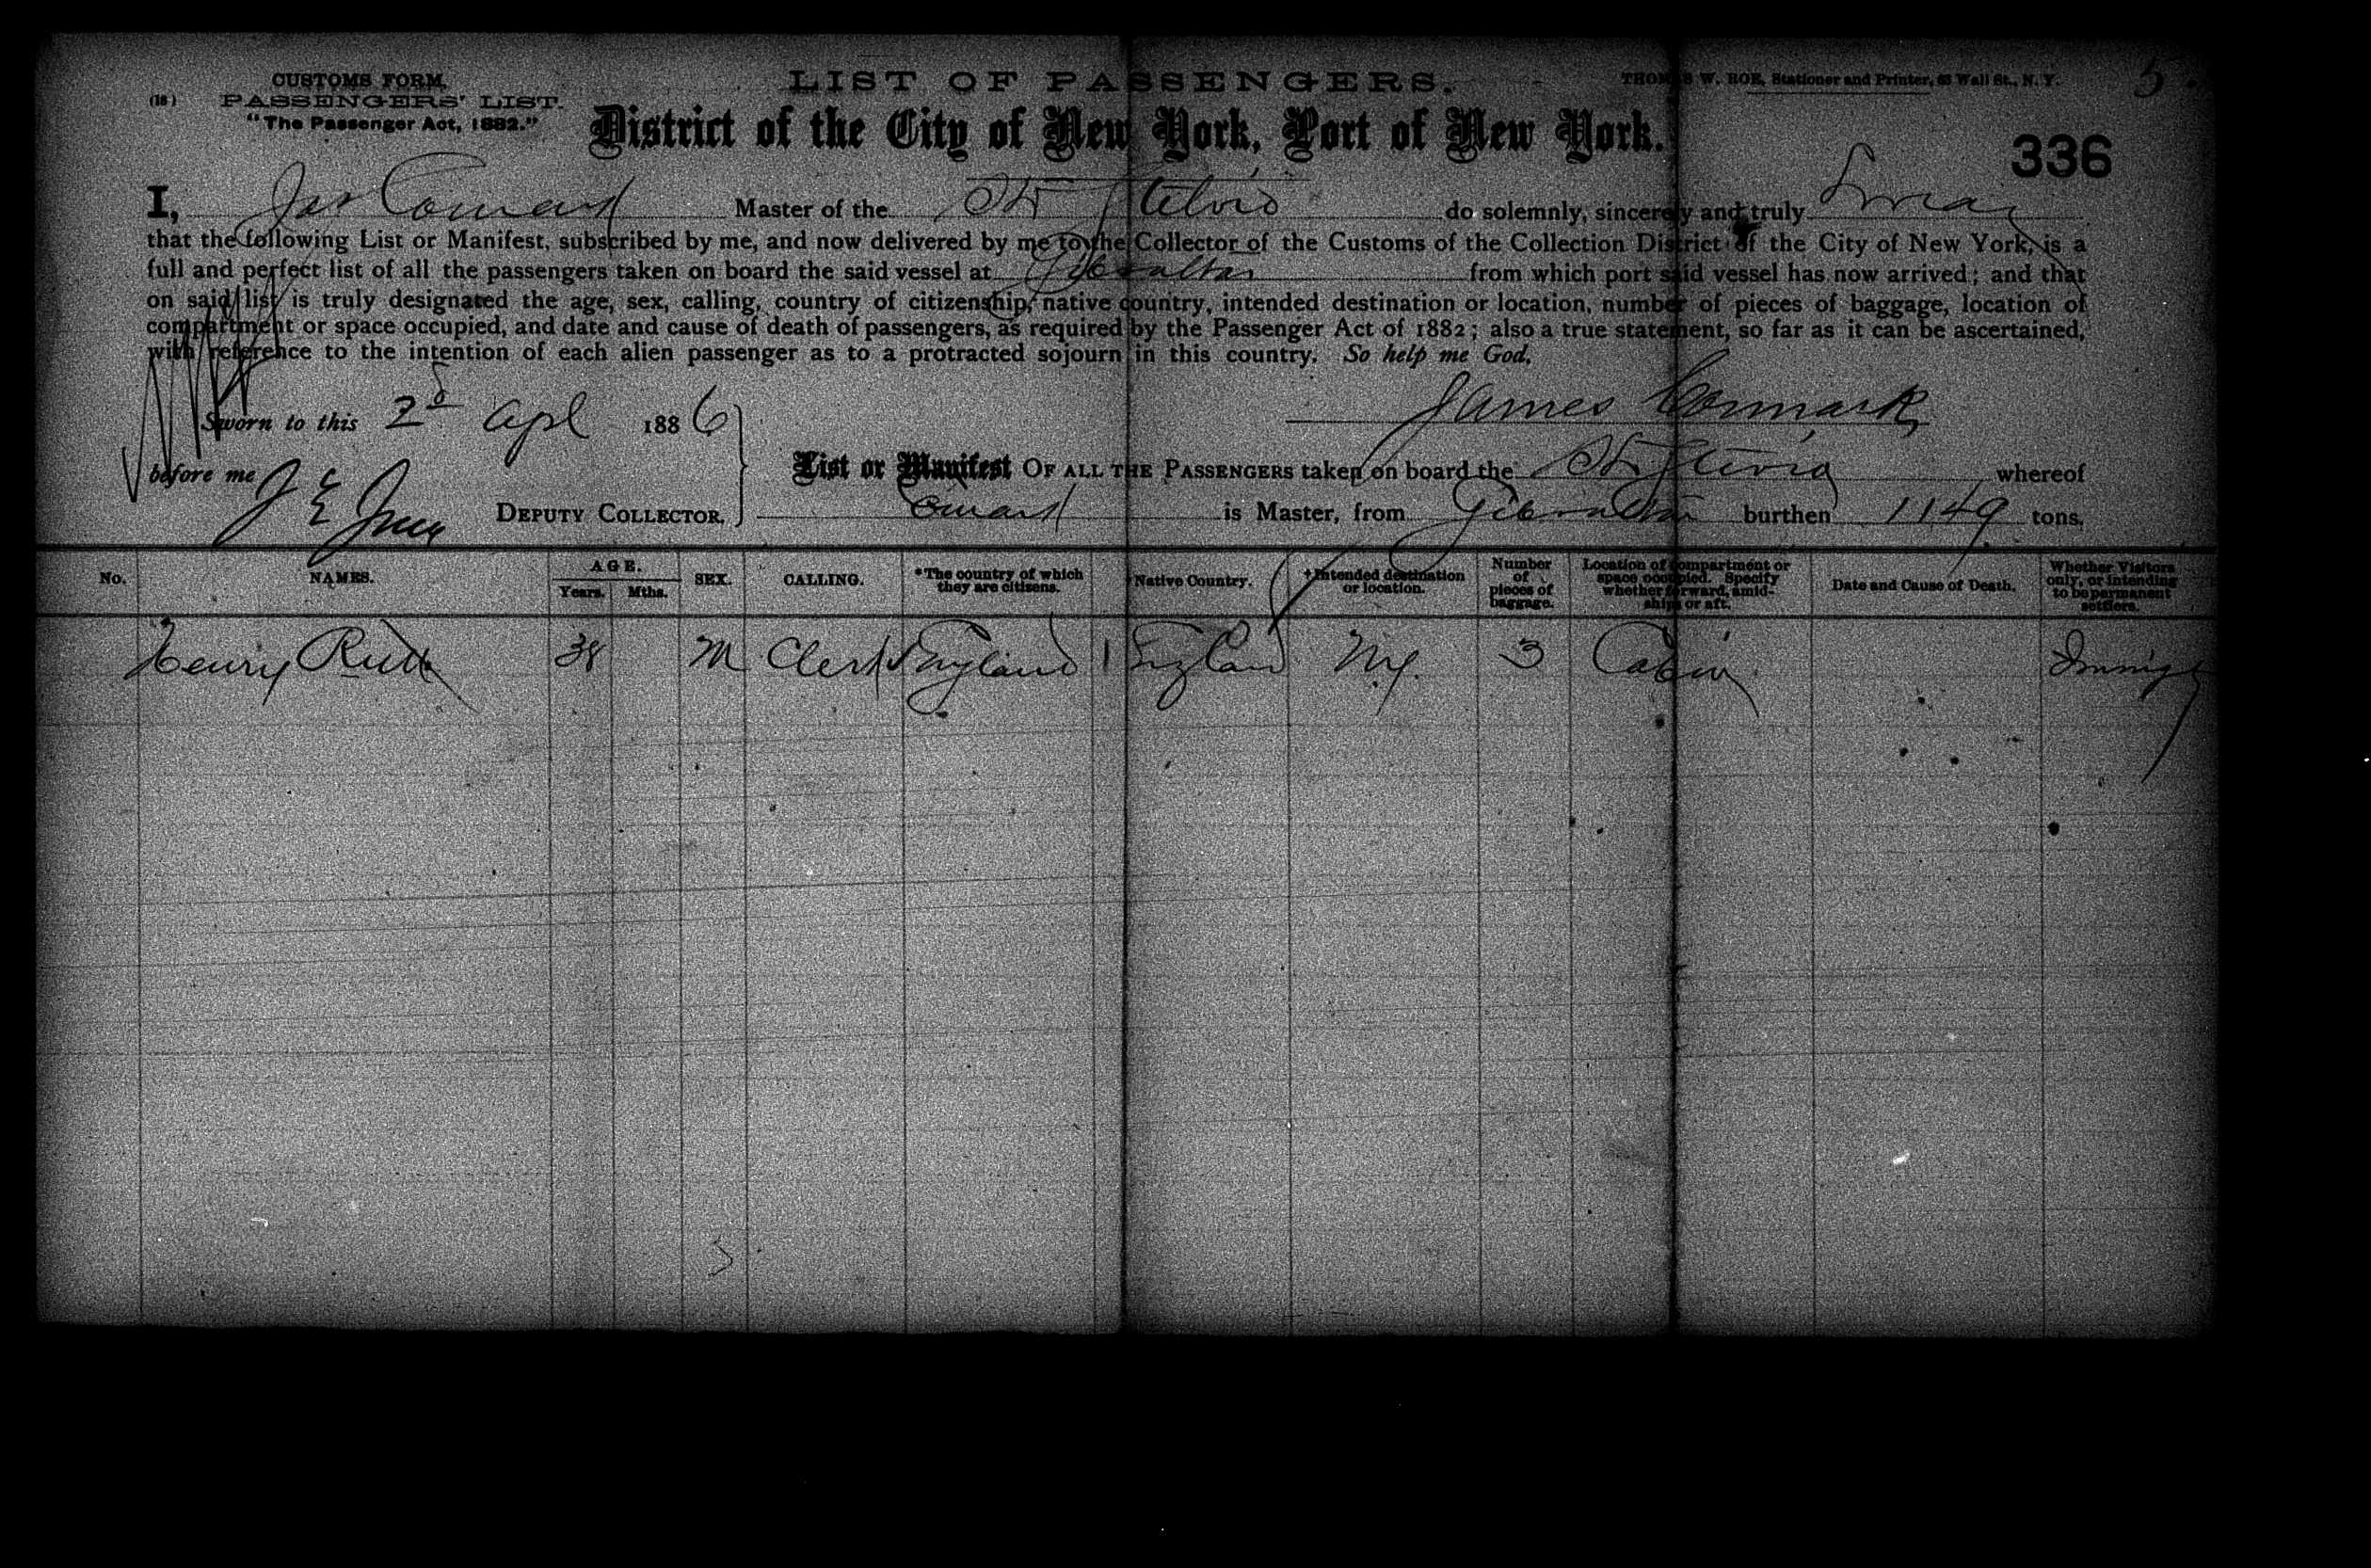 CUSTOMS FORM,
(18) PASSENGERS' LIST.
"The Passenger Act, 1882."
LIST OF PASSENGERS.
THOMAS W. ROE, Stationer and Printer, 63 Wall St., N. Y.
5
District of the City of New York, Port of New York.
336
I, Jas Master of the Str Stelvio do solemnly, sincerely and truly Swear
that the following List or Manifest, subscribed by me, and now delivered by me to the Collector of the Customs of the Collection District of the City of New York, is a
full and perfect list of all the passengers taken on board the said vessel at Gibraltar from which port said vessel has now arrived; and that
on said list is truly designated the age, sex, calling, country of citizenship, native country, intended destination or location, number of pieces of baggage, location of
compartment or space occupied, and date and cause of death of passengers, as required by the Passenger Act of 1882; also a true statement, so far as it can be ascertained,
with reference to the intention of each alien passenger as to a protracted sojourn in this country. So help me God.
Sworn to this 2d apl 1886
James Cormack
before me J E
DEPUTY COLLECTOR.
List or Manifest OF ALL THE PASSENGERS taken on board the Str whereof
is Master, from Gibraltar burthen 1149 tons.
No. NAMES. AGE. Years. Mths. SEX. CALLING. *The country of which they are citizens. Native Country. †Intended destination or location. Number of pieces of baggage. Location of compartment or space occupied. Specify whether forward, amidships or aft. Date and Cause of Death. Whether Visitors only, or intending to be permanent settlers.
Henry 38 M Clerk England England N.Y. 3 Cabin